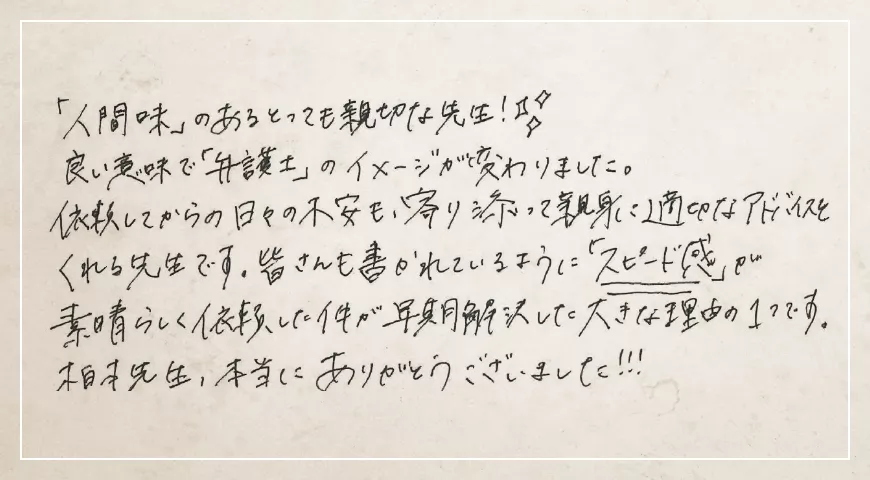 「人間味」のあるとっても親切な先生!
良い意味で「弁護士」のイメージが変わりました。
依頼してからの日々の不安も、寄り添って親身に適切なアドバイスを
くれる先生です。皆さんも書かれているように「スピード感」が
素晴らしく依頼した件が早期解決した大きな理由の1つです。
柏本先生、本当にありがとうございました!!!